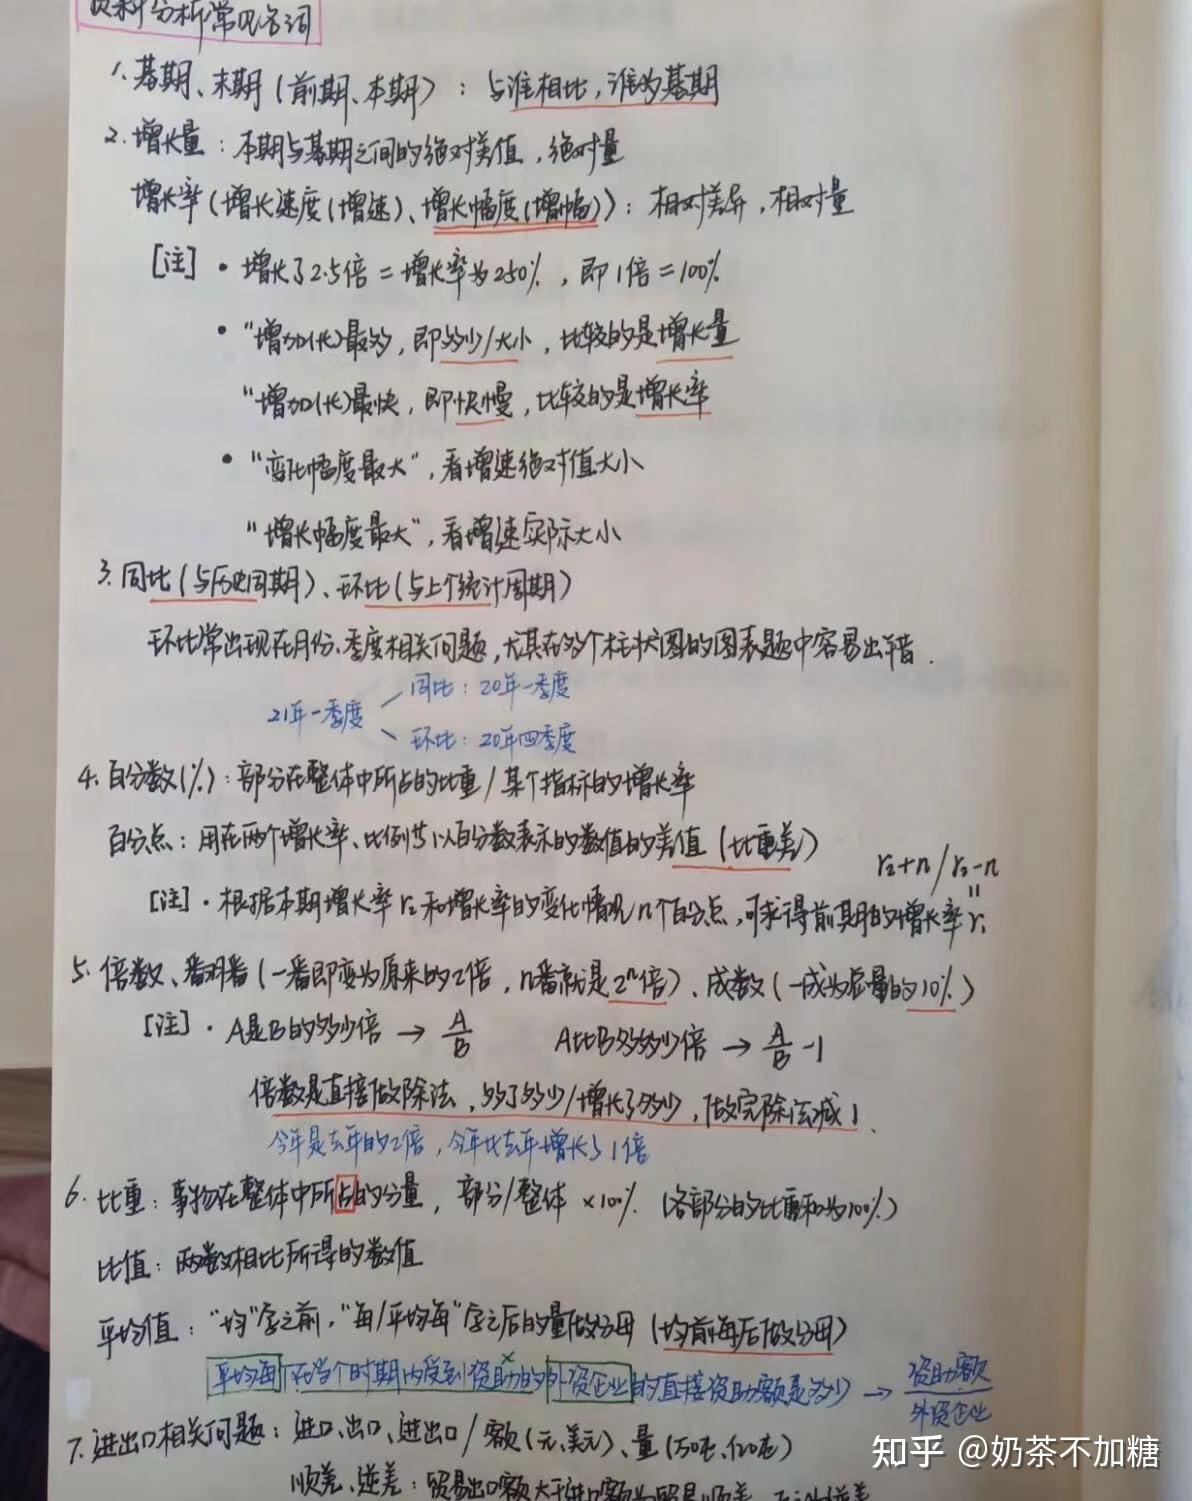 资料分析常见名词
1. 基期、末期(前期、本期): 与谁相比,谁为基期
2. 增长量: 本期与基期之间的绝对差值,绝对量
增长率(增长速度(增速)、增长幅度(增幅)): 相对差异,相对量
[注]·增长了2.5倍=增长率为250%,即1倍=100%
·"增加(长)最多,即多少/大小,比较的是增长量
"增加(长)最快,即快慢,比较的是增长率
·"变化幅度最大",看增速绝对值大小
"增长幅度最大",看增速实际大小
3. 同比(与历史同期)、环比(与上个统计周期)
环比常出现在月份、季度相关问题,尤其在多个柱状图的图表题中容易出错.
同比: 20年一季度
21年一季度
环比: 20年四季度
4. 百分数(%): 部分在整体中所占的比重/某个指标的增长率
百分点: 用在两个增长率、比例等以百分数表示的数值的差值(比重差)
r₂+n/r₂-n
[注]·根据本期增长率r₂和增长率的变化情况n个百分点,可求得前期的增长率r₁
5. 倍数、番/翻番(一番即变为原来的2倍,n番就是2ⁿ倍)、成数(一成为总量的10%)
[注]·A是B的多少倍→A/B A比B多多少倍→A/B-1
倍数是直接做除法,多了多少/增长了多少,做完除法减1、
今年是去年的2倍,今年比去年增长了1倍
6. 比重: 事物在整体中所占的分量,部分/整体×100% (各部分的比重和为100%)
比值: 两数相比所得的数值
平均值: "均"字之前,"每/平均每"字之后的量做分母(均前每后做分母)
平均每个在当个时期内受到资助的外资企业的直接资助额是多少→资助额/外资企业
7. 进出口相关问题: 进口、出口、进出口/额(元、美元)、量(万吨、亿吨)
顺差、逆差: 贸易出口额大于进口额为贸易顺差
知乎 @奶茶不加糖